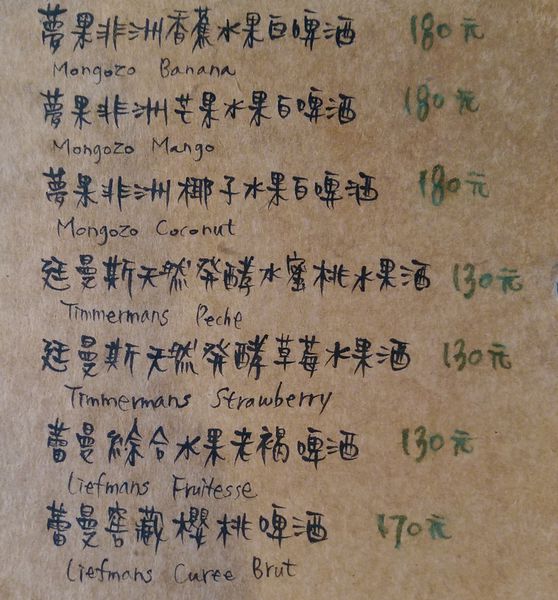 夢果非洲香蕉水果白啤酒 180元
Mongozo Banana
夢果非洲芒果水果白啤酒 180元
Mongozo Mango
夢果非洲椰子水果白啤酒 180元
Mongozo Coconut
廷曼斯天然發酵水蜜桃水果酒 130元
Timmermans Peche
廷曼斯天然發酵草莓水果酒 130元
Timmermans Strawberry
蕾曼綜合水果老褐啤酒 130元
Liefmans Fruitesse
蕾曼窖藏櫻桃啤酒 170元
Liefmans Curee Brut